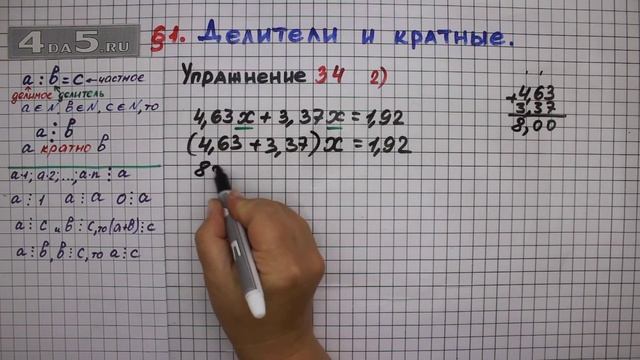 4DA5.RU
§1. Делители и кратные.
Упражнение 34 2)
a : b = c ← частное
делимое делитель
a ∈ N, b ∈ N, c ∈ N, то
a ⋮ b
a кратно b
a·1; a·2; ...; a·n ⋮ a
a ⋮ 1 a ⋮ a 0 ⋮ a
a ⋮ c и b ⋮ c, то (a+b) ⋮ c
a ⋮ b, b ⋮ c, то a ⋮ c
4,63x + 3,37x = 1,92
(4,63 + 3,37)x = 1,92
8x
+4,63
3,37
8,00